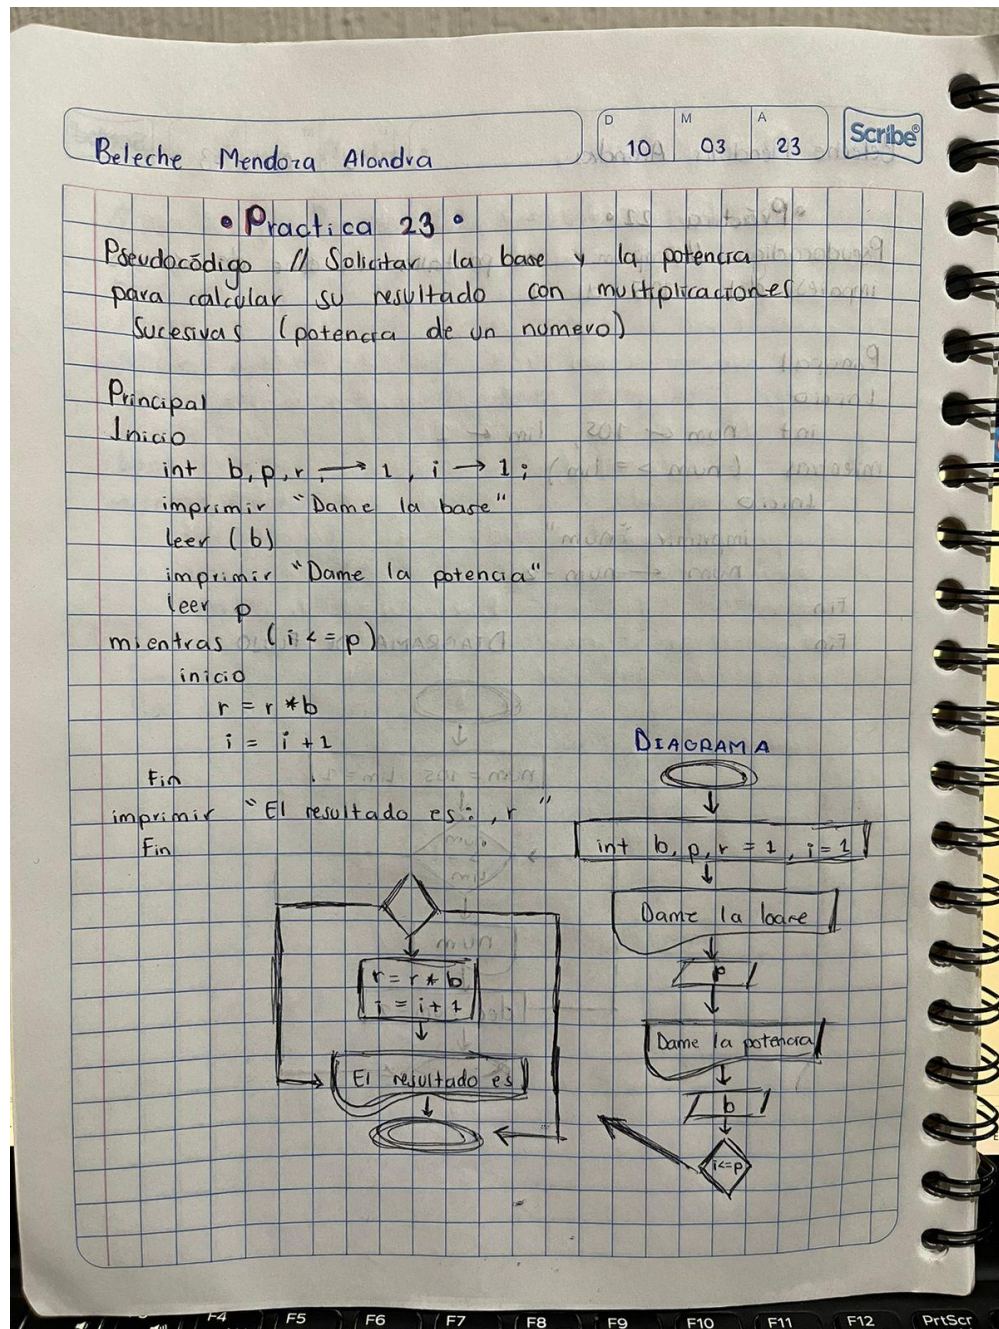 D M A
Beleche Mendoza Alondra 10 03 23 Scribe®
• Practica 23 •
Pseudocódigo // Solicitar la base y la potencia
para calcular su resultado con multiplicaciones
Sucesivas (potencia de un numero)
Principal
Inicio
int b, p, r → 1, i → 1;
imprimir "Dame la base"
leer (b)
imprimir "Dame la potencia"
leer p
mientras (i <= p)
inicio
r = r * b
i = i + 1
Fin
imprimir "El resultado es:, r"
Fin
DIAGRAMA
int b, p, r = 1, i = 1
Dame la base
p
Dame la potencia
b
i<=p
r = r * b
i = i + 1
El resultado es
F4 F5 F6 F7 F8 F9 F10 F11 F12 PrtScr